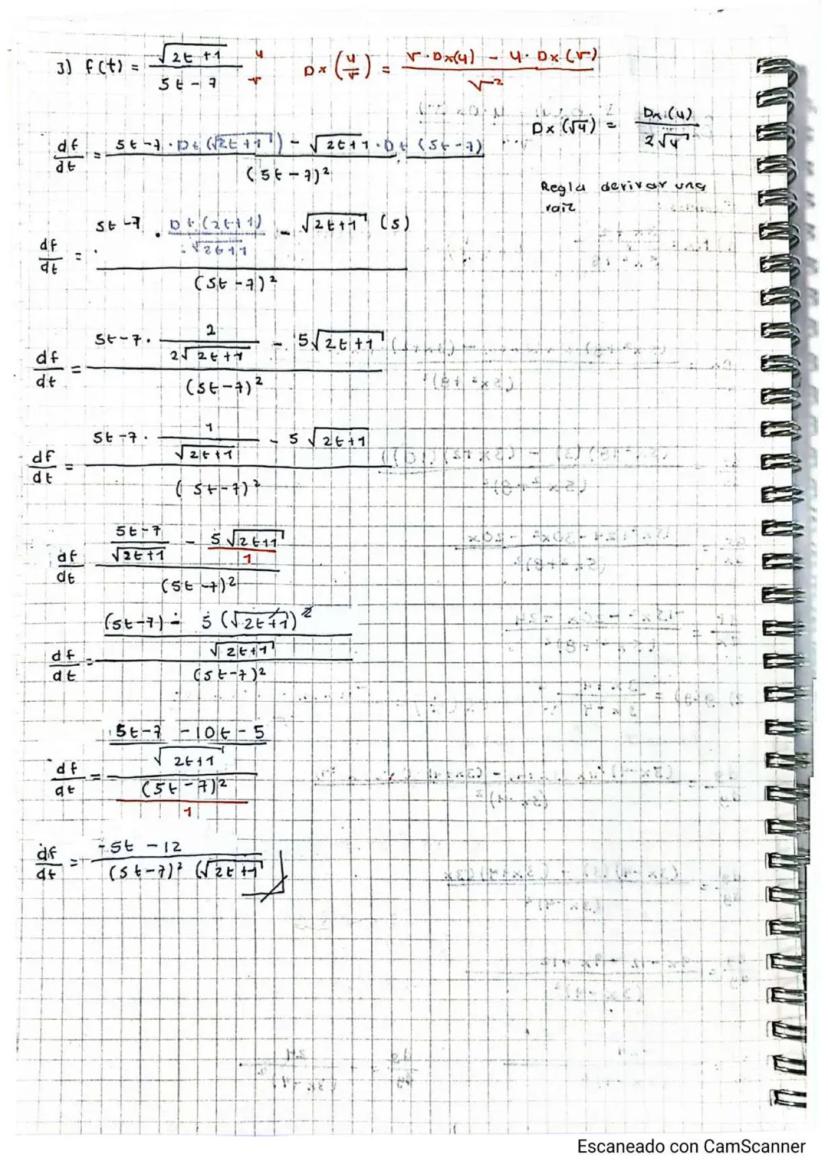 3) f(t) = √(2t+1) / 5t - 7   u / v   Dx (u/v) = v·Dx(u) - u·Dx(v) / v²
Dx (√u) = Dx(u) / 2√u
Regla derivar una raiz
df/dt = 5t-7 · Dt(√(2t+1)) - √(2t+1) · Dt (5t-7) / (5t-7)²
df/dt = 5t-7 · Dt(2t+1) / √(2t+1) - √(2t+1) (5) / (5t-7)²
df/dt = 5t-7 · 2 / 2√(2t+1) - 5√(2t+1) / (5t-7)²
df/dt = 5t-7 · 1 / √(2t+1) - 5√(2t+1) / (5t-7)²
df/dt = 5t-7 / √(2t+1) - 5√(2t+1) / 1 / (5t-7)²
df/dt = (5t-7) - 5 (√(2t+1))² / √(2t+1) / (5t-7)²
df/dt = 5t-7 - 10t - 5 / √(2t+1) / (5t-7)² / 1
df/dt = -5t - 12 / (5t-7)² (√(2t+1)
Escaneado con CamScanner